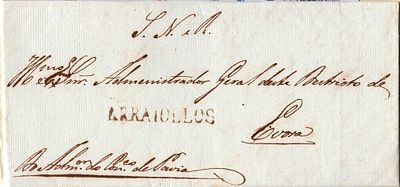 S. N. e R.
Illmo e Exmo Snr. Administrador Geral deste Destricto de
ARRAIOLLOS
Evora
Do Admor do Conco de Pavia